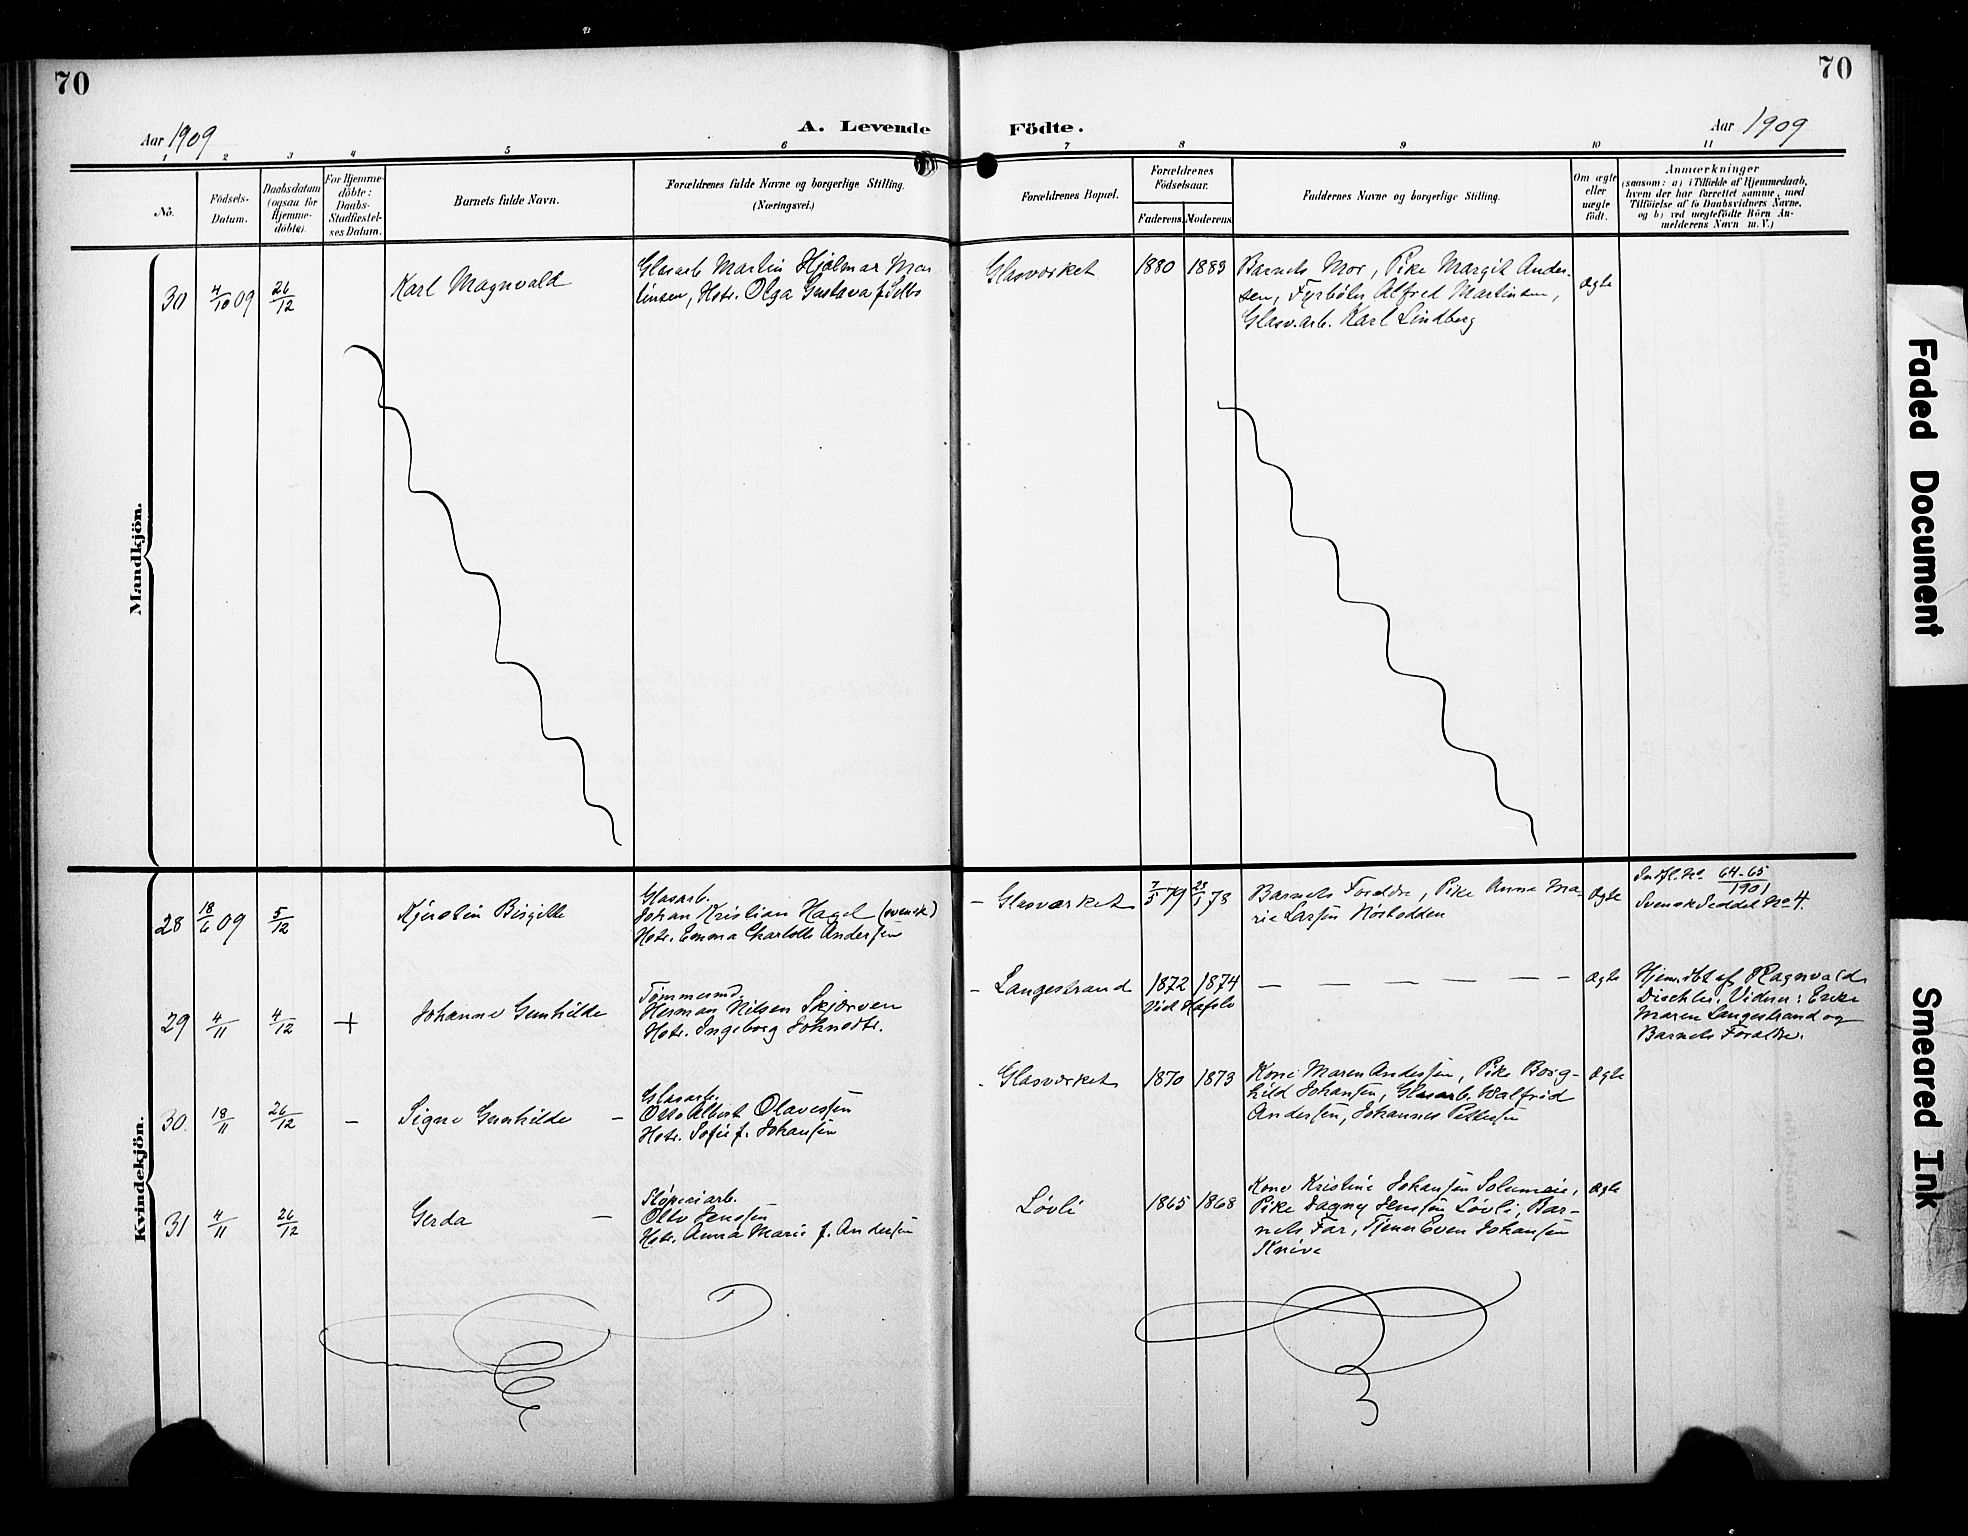 70
70
Aar 1909
A. Levende
Födte.
Aar 1909
1 2 3 4 5 6 7 8 9 10 11
No.
Födsels-
Datum.
Daabsdatum
(ogsaa för
Hjemme-
döbte).
For Hjemme-
döbte:
Daabs-
Stadfæstel-
ses Datum.
Barnets fulde Navn.
Forældrenes fulde Navne og borgerlige Stilling.
(Næringsvei.)
Forældrenes Bopæl.
Forældrenes
Födselsaar.
Faderens.
Moderens.
Faddernes Navne og borgerlige Stilling.
Om ægte
eller
uægte
födt.
Anmærkninger
(saasom: a) i Tilfælde af Hjemmedaab,
hvem der har forrettet samme, med
Tilföielse af to Daabsvidners Navne,
og b) ved uægtefödte Börn An-
melderens Navn m. V.)
Mandkjön.
30
4/10 09
26/12
Karl Magnvald
Glasarb. Martin Hjalmar Mar
tinsen, Hstr. Olga Gustava
Glasværket
1880
1883
Barnets Mor, Pike Margit Ander-
sen, Fyrbøter Alfred Martinsen,
Glasv.arb. Karl Lindberg
ægte
Kvindekjön.
28
18/6 09
5/12
Kjerstin Birgitte
Glasarb.
Johan Kristian Hagel (svensk)
Hstr. Emma Charlotte Andersen
- Glasværket
7/5 79
23/1 78
Barnets Forældre, Pike Anna Ma-
rie Larsen Røsholdden
ægte
Indfl. No. 64-65/1901
Svensk Seddel No 4.
29
4/11
4/12
+
Johanne Gunhilde
Tømmermd.
Herman Nilsen Skjærven
Hstr. Ingeborg Johnsdtr.
- Langestrand
1872
1874
Vid Hafslo
— — — — — —
ægte
Hjem.dbt af Ragnvald
Dischler. Vidner: Enke
Maren Langestrand og
Barnets Forældre.
30.
18/11
26/12
-
Signe Gunhilde -
Glasarb.
Otto Albert Olavessen
Hstr. Sofie f. Johansen
- Glasværket
1870
1873
Kone Maren Andersen, Pike Borg-
hild Johansen, Glasarb. Walfrid
Andersen, Johannes Pettersen
ægte
31
4/11
26/12
Gerda -
Sliperiarb.
Otto Jensen
Hstr. Anna Marie f. Andersen
Løvli
1865
1868
Kone Kristine Johansen Solumeie,
Pike Dagny Jensen Løvli, Bar-
nets Far, Tjener Even Johansen
Knive
ægte
Faded Document
Smeared Ink